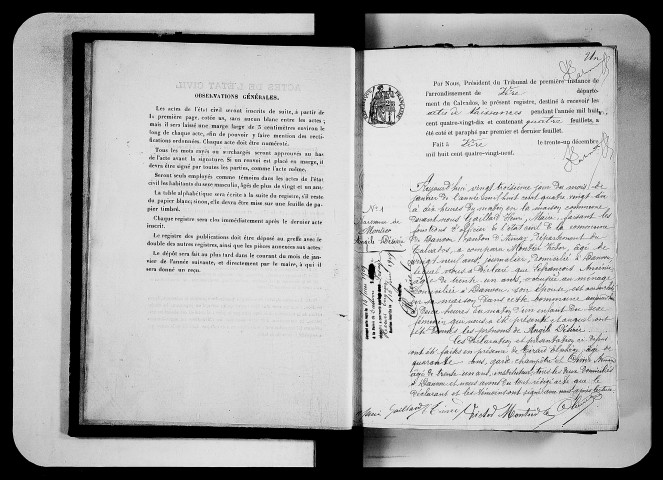 ACTES DE L'ÉTAT CIVIL.
OBSERVATIONS GÉNÉRALES.
Les actes de l'état civil seront inscrits de suite, à partir de
la première page, cotée un, sans aucun blanc entre les actes ;
mais il sera laissé une marge large de 5 centimètres environ le
long de chaque acte, afin de pouvoir y faire mention des recti-
fications ordonnées. Chaque acte doit être numéroté.
Tous les mots rayés ou surchargés seront approuvés au bas
de l'acte avant la signature. Si un renvoi est placé en marge, il
devra être signé par toutes les parties, comme l'acte même.
Seront seuls employés comme témoins dans les actes de l'état
civil les habitants du sexe masculin, âgés de plus de vingt et un ans.
La table alphabétique sera écrite à la suite du registre, s'il reste
du papier blanc; sinon, elle devra être mise sur une feuille de pa-
pier timbré.
Chaque registre sera clos immédiatement après le dernier acte
inscrit.
Le registre des publications doit être déposé au greffe avec le
double des autres registres, ainsi que les pièces annexées aux actes.
Le dépôt sera fait au plus tard dans le courant du mois de
janvier de l'année suivante, et directement par le maire, à qui il
sera donné un reçu.
Un
Par Nous, Président du Tribunal de première instance de
l'arrondissement de Vire départe-
ment du Calvados, le présent registre, destiné à recevoir les
actes de Naissances pendant l'année mil huit
cent quatre-vingt-dix et contenant quatre feuillets, a
été coté et paraphé par premier et dernier feuillet.
Fait à Vire le trente-un décembre
mil huit cent quatre-vingt-neuf.
N° 1
Naissance de
Angèle Désirée
Aujourd'hui vingt troisième jour du mois de
janvier de l'année mil huit cent quatre vingt dix
à dix heures du matin en la maison commune
devant nous Gaillard Maire, faisant les
fonctions d'officier de l'état civil de la commune
de Danvou, canton d'Aunay, département du
Calvados, a comparu Victor, âgé de
vingt neuf ans, journalier, domicilié à Danvou,
lequel nous a déclaré que
âgée de trente un ans, occupée au ménage
domiciliée à Danvou son épouse, est accouchée
en sa maison dans cette commune aujourd'hui
à heures du matin d'un enfant du sexe
féminin qui nous a été présenté et auquel ont
été donnés les prénoms de Angèle Désirée
Les déclaration et présentation ci-dessus
ont été faites en présence de âgé de
quarante ans, garde champêtre et
âgé de trente un ans, instituteur, tous les deux domiciliés
à Danvou et nous avons du tout rédigé acte que le
déclarant et les témoins ont signé avec nous après lecture
Gaillard Victor